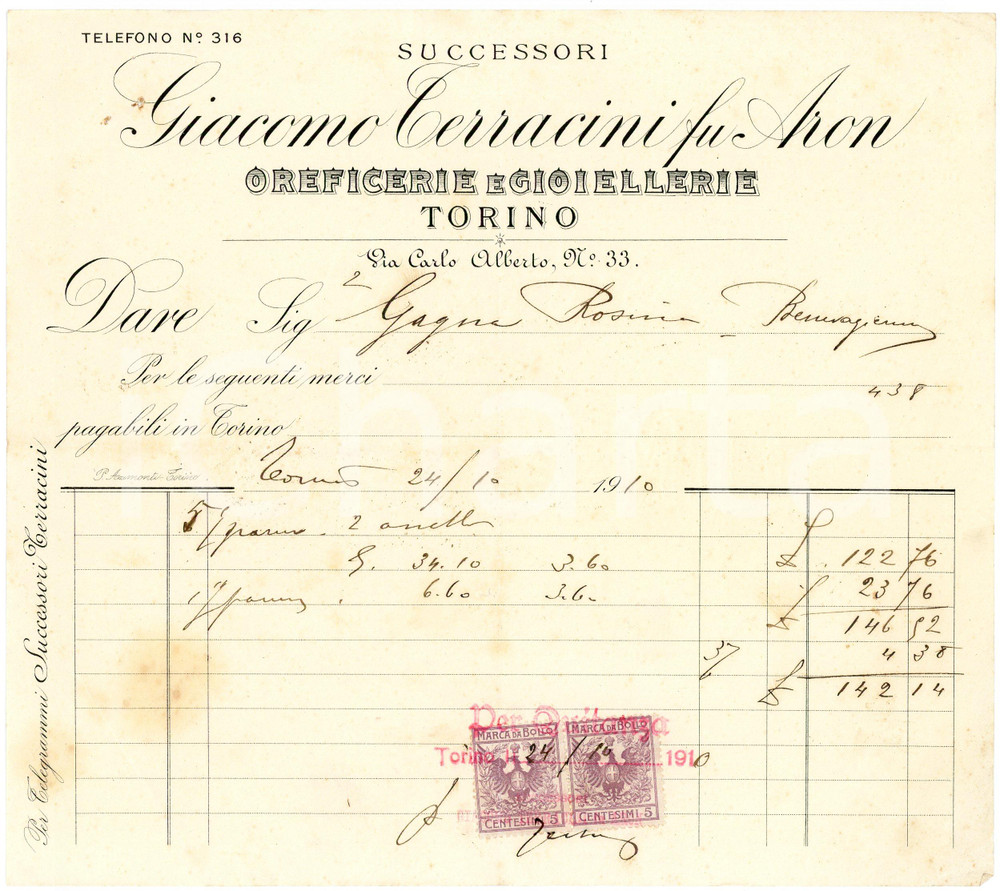 TELEFONO Nº 316
SUCCESSORI
Giacomo Terracini fu Aron
OREFICERIE E GIOIELLERIE
TORINO
Via Carlo Alberto, Nº 33.
Dare Sig Gagna Rosina
Per le seguenti merci
438
pagabili in Torino
Torino 24/10 1910
2 anelli
G. 34.10 3.60 £ 122 76
6.60 3.60 23 76
£ 146 52
3% 4 38
£ 142 14
Per Quitanza
MARCA DA BOLLO MARCA DA BOLLO
Torino li 24/10 1910
CENTESIMI 5 CENTESIMI 5
Per Telegrammi Successori Terracini